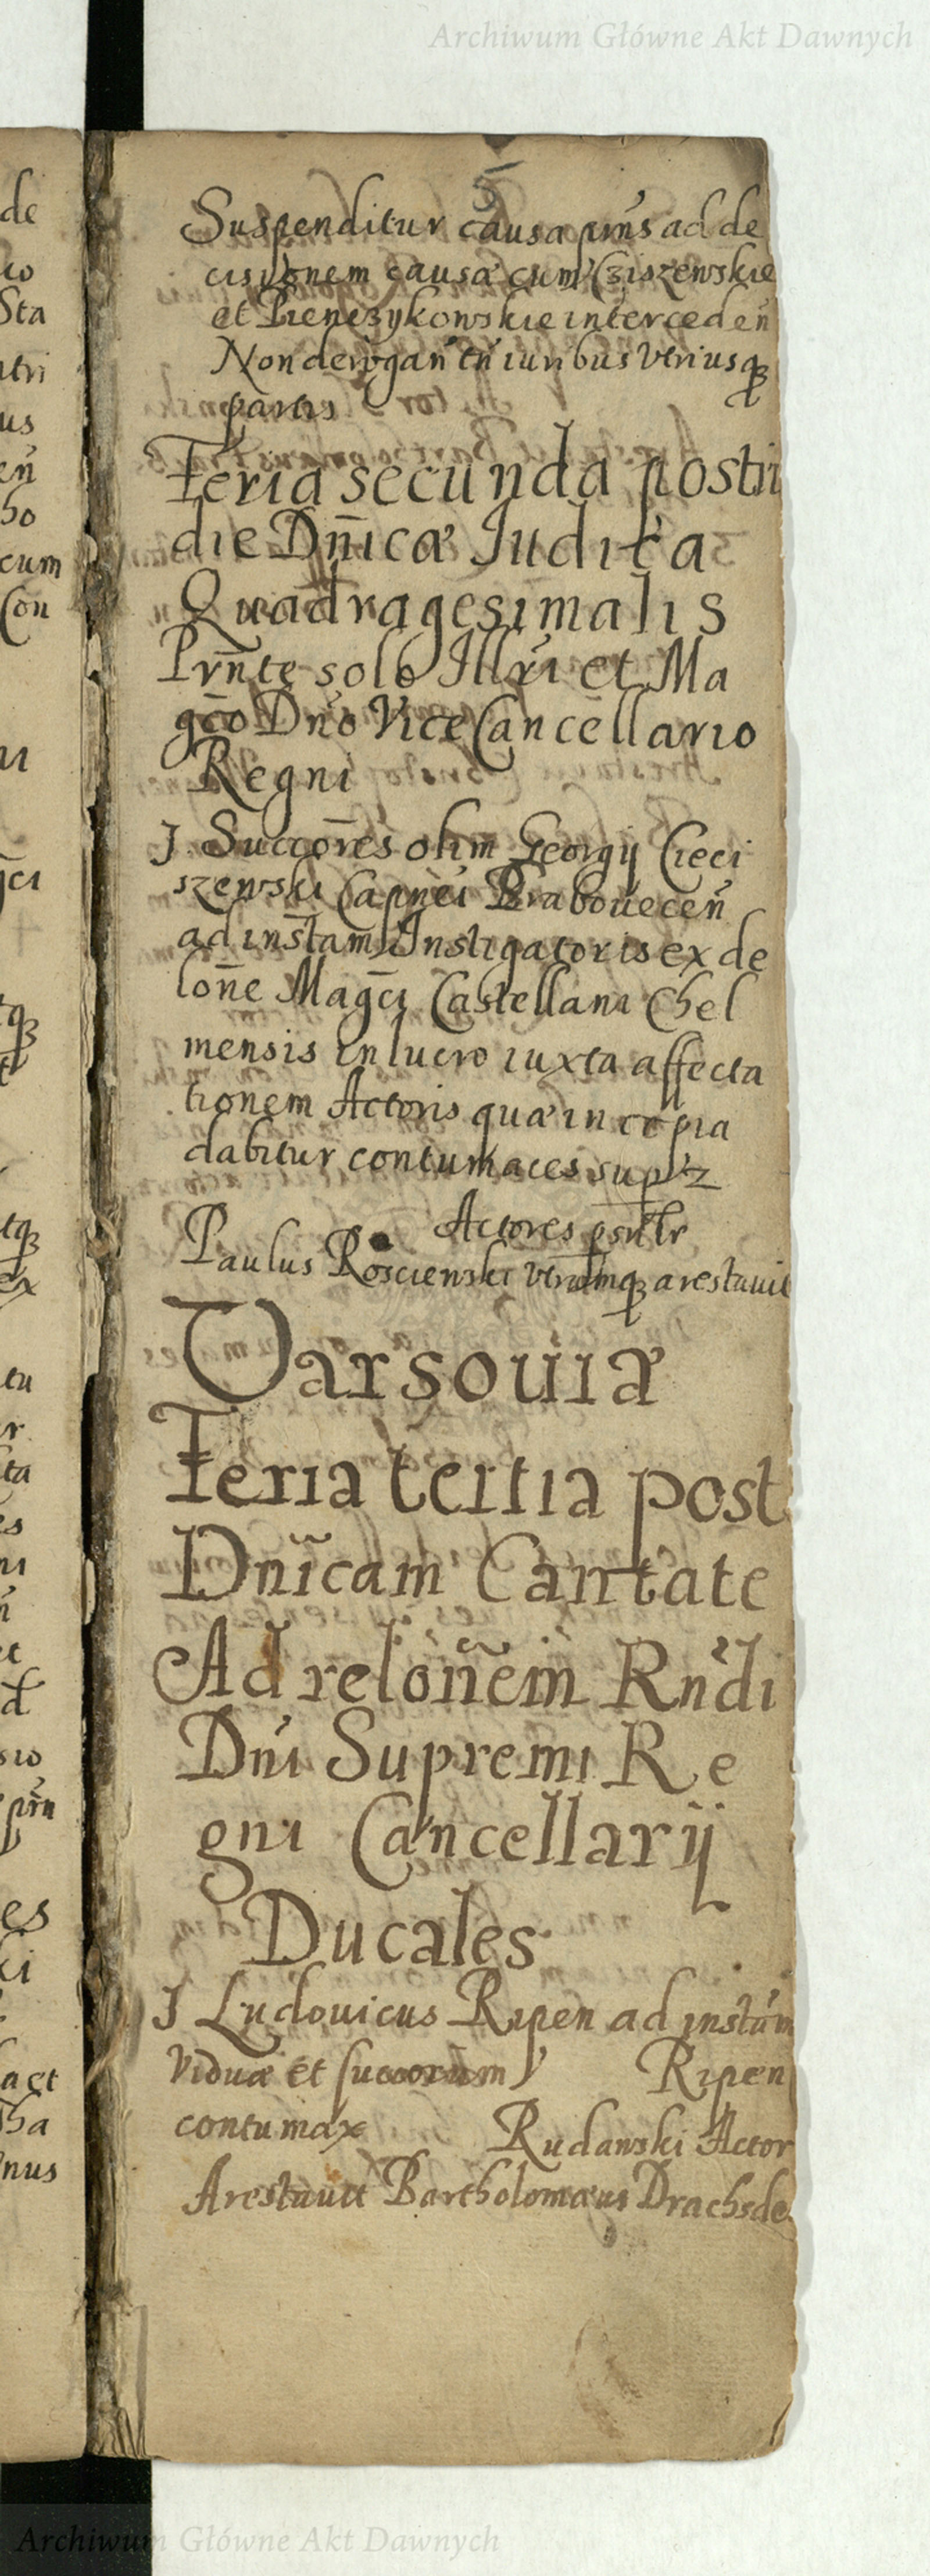 Archiwum Główne Akt Dawnych
5
Suspenditur causa pr̃ns ad de
cisionem causæ cum Cziszewskie
et Pieniezykowskie interceden̄
Non derogan̄ tn̄ iuribus vtriusq₃
partis
Feria secunda postri
die Dn̄icæ Iudica
Quadragesimalis
Prn̄te solo Illr̃i et Ma
gc̄o Dn̄o ViceCancellario
Regni
J Succor̄es olim Georgij Cieci
szewski Capnei Grabouecen̄
ad instam Instigatoris ex de
lon̄e Magc̄i Castellani Chel
mensis in lucro iuxta affecta
tionem Actoris quæ in copia
dabitur contumaces sup
Actores psn̄tr
Paulus Roscienski vtrumq₃ arestauit
Varsouiæ
Feria tertia post
Dn̄icam Cantate
Ad relon̄em Rn̄di
Dn̄i Supremi Re
gni Cancellarij
Ducales
J Ludouicus Ripen ad instam
Viduæ et succorum Ripen
contumax Rudawski Actor
Arestauit Bartholomæus Drachsde
Archiwum Główne Akt Dawnych